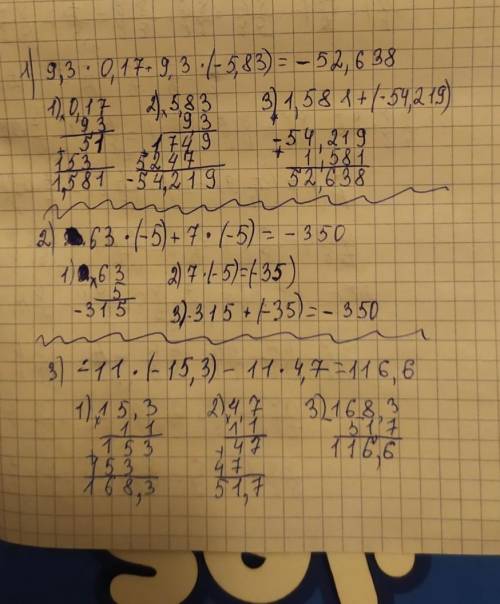 1) 9,3 · 0,17 + 9,3 · (-5,83) = -52,638
1) × 0,17 2) × 5,83 3) 1,581 + (-54,219)
93 93 - 54,219
+ 51 + 1749 1,581
153 5247 52,638
1,581 -54,219
2) 63 · (-5) + 7 · (-5) = -350
1) × 63 2) 7 · (-5) = (-35)
5 3) -315 + (-35) = -350
-315
3) -11 · (-15,3) - 11 · 4,7 = 116,6
1) × 15,3 2) × 4,7 3) - 168,3
11 11 51,7
+ 153 + 47 116,6
153 47
168,3 51,7